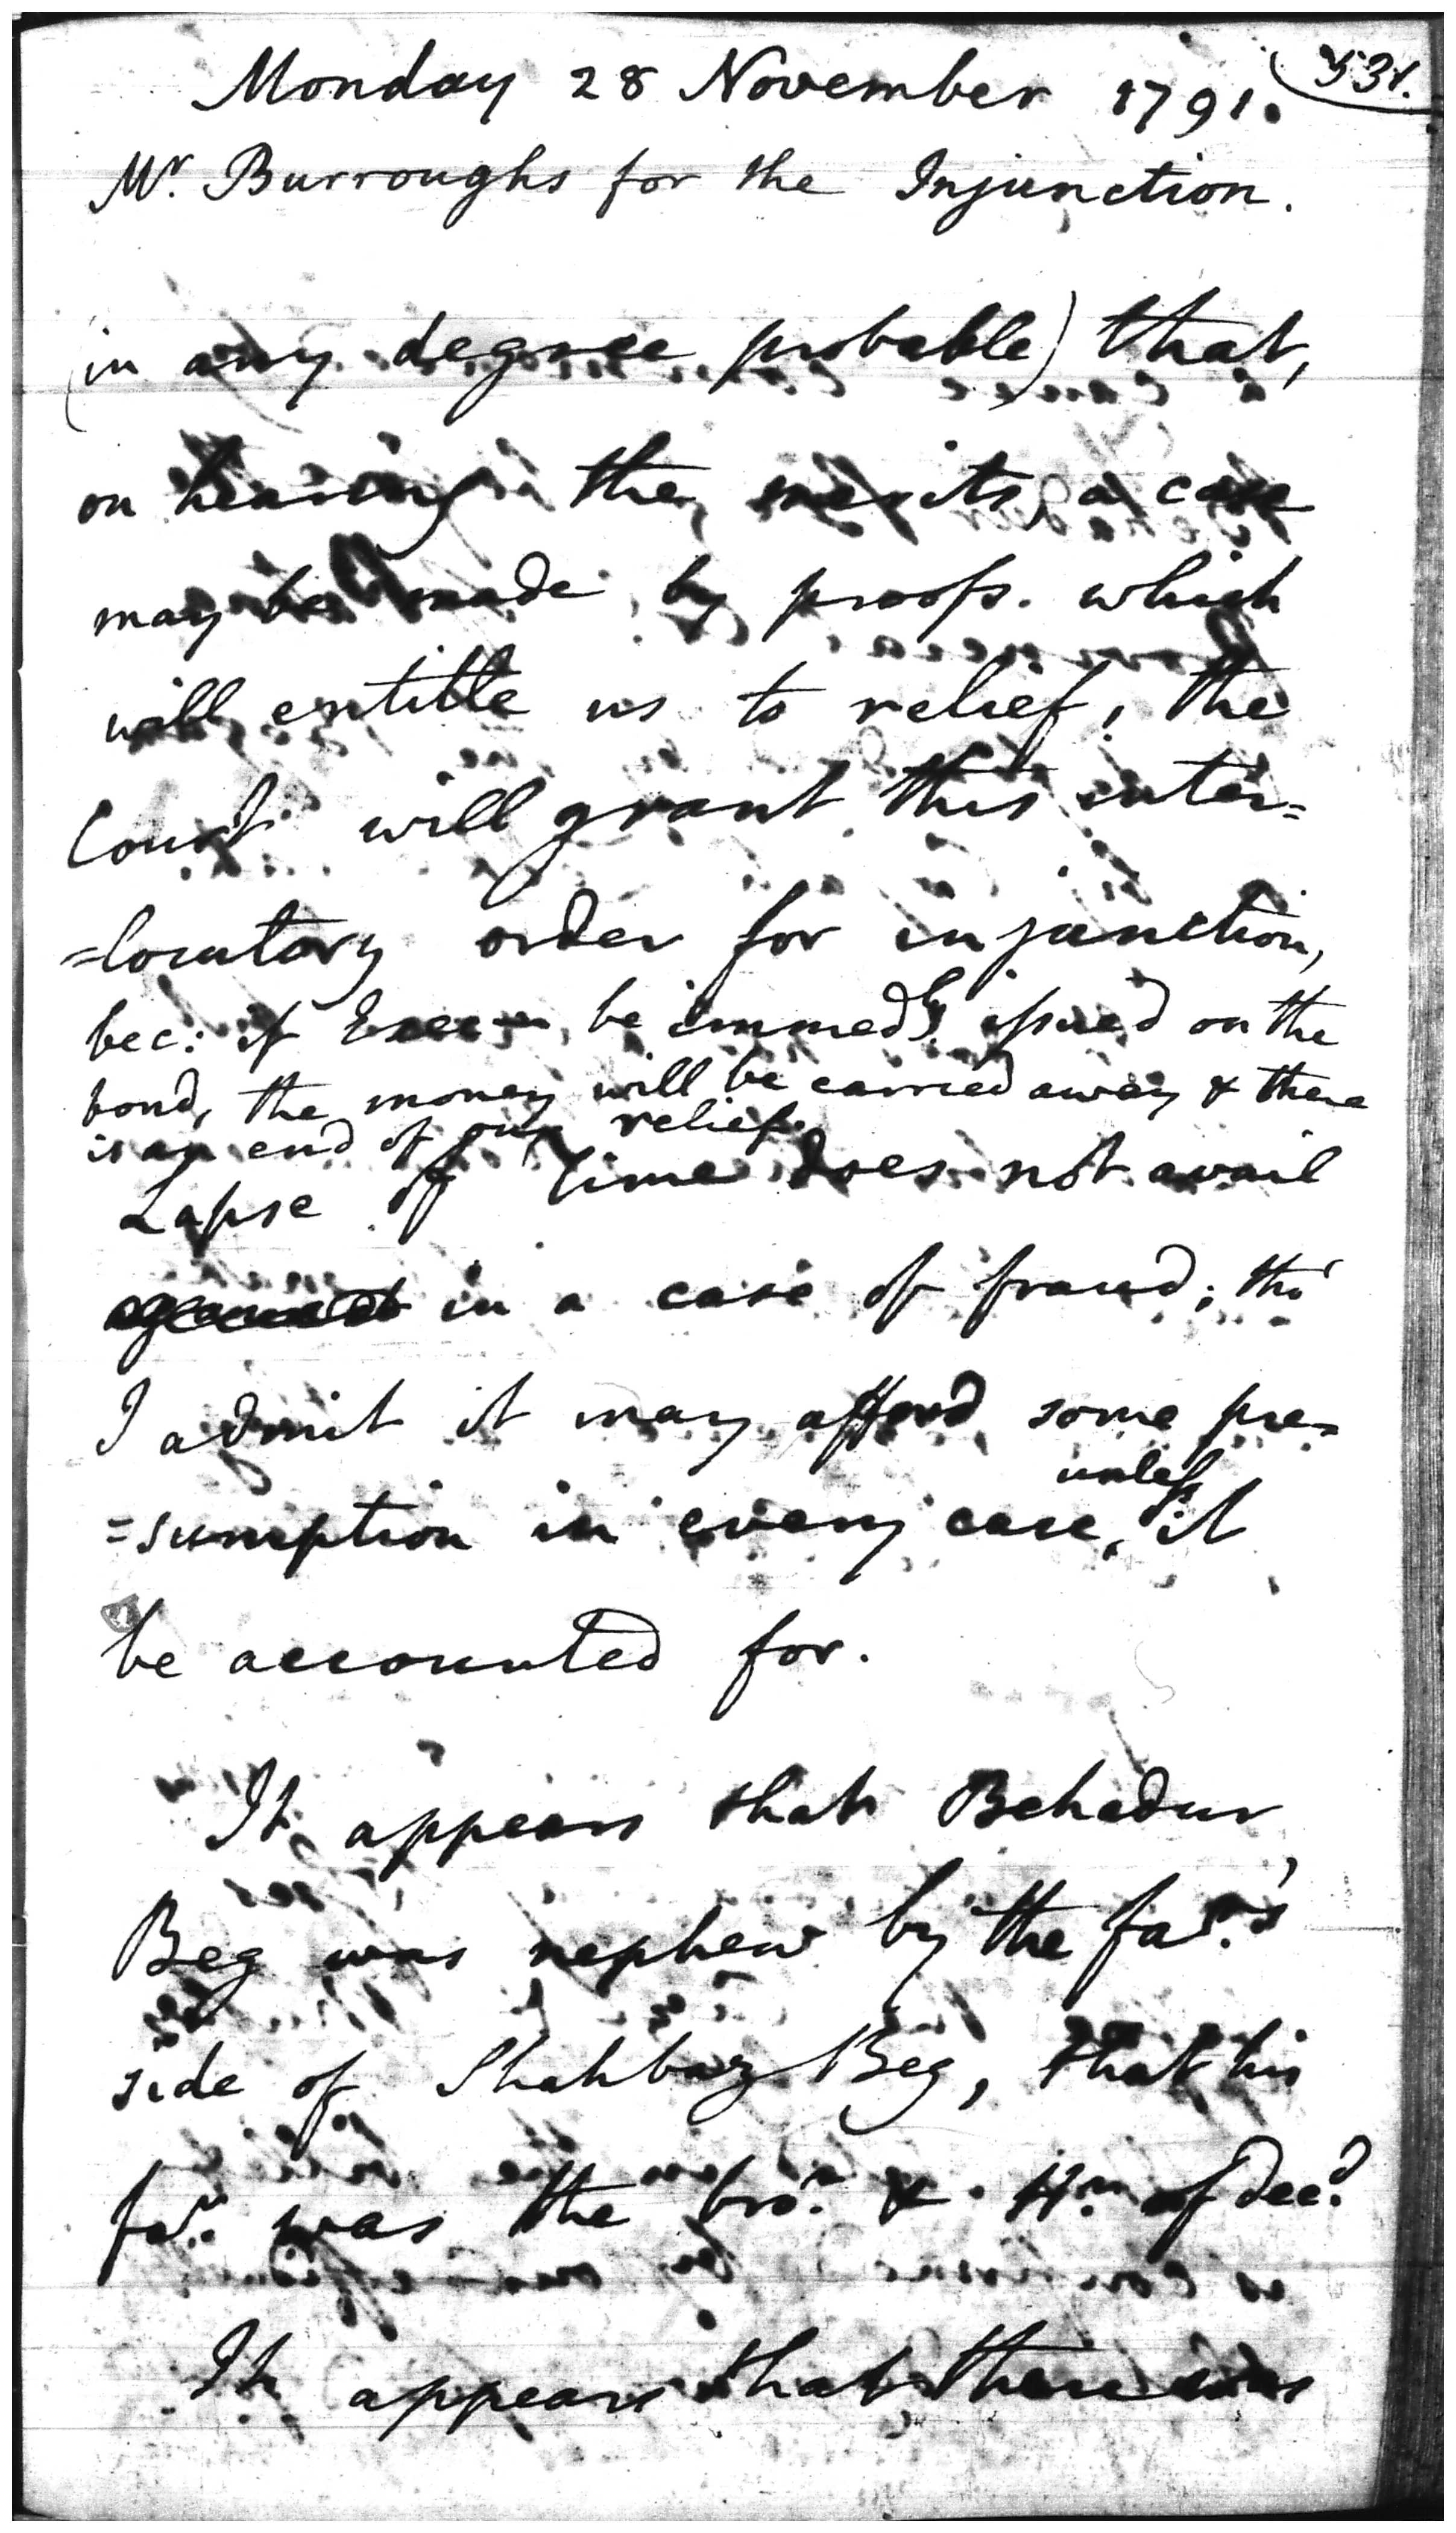 531.
Monday 28 November 1791.
Mr. Burroughs for the Injunction.
(in any degree probable) that,
on hearing the merits, a case
may be made by proofs. which
will entitle us to relief, the
Court will grant this inter=
=locutory order for injunction,
bec: if Execn. be immedly. issued on the
bond, the money will be carried away & there
is an end of our relief.
Lapse of time does not avail
in a case of fraud; tho'
I admit it may afford some pre=
unless
=sumption in every case, it
be accounted for.
It appears that Behadur
Beg was nephew by the far.'s
side of Shahbaz Beg, that his
far. was the bror. & Hr. of decd.
It appears that there was